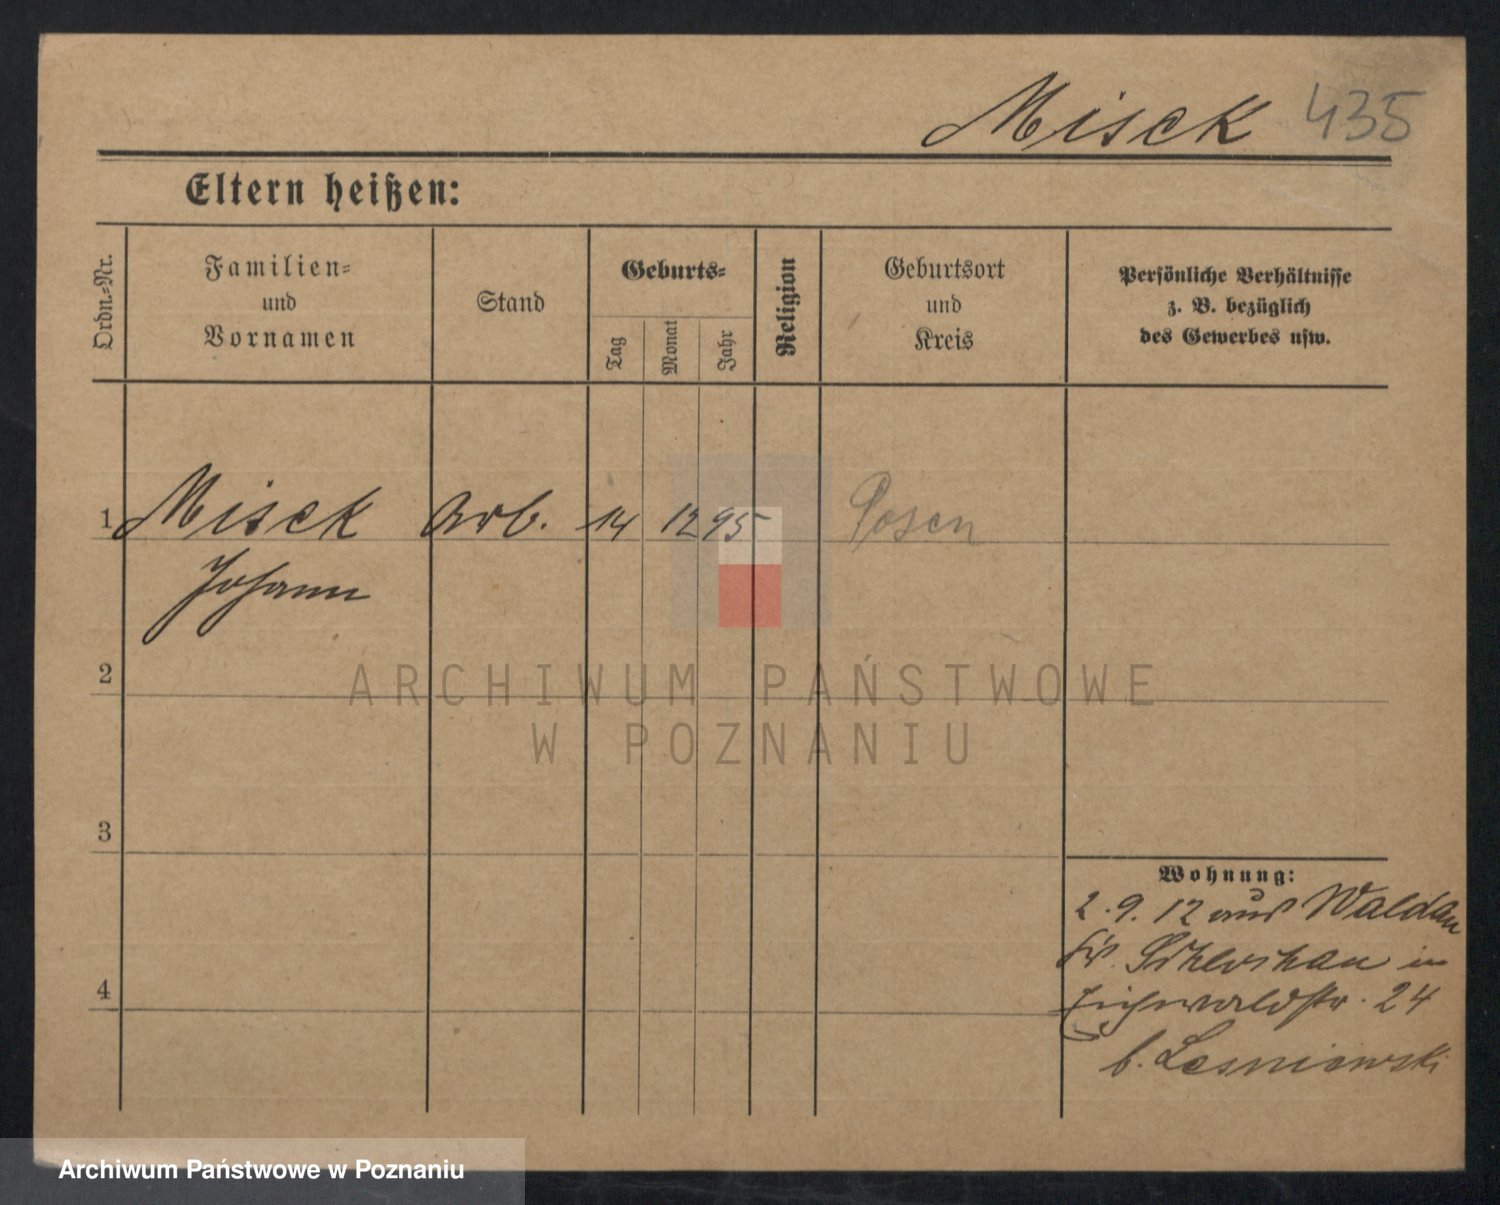 Misck 435
Eltern heißen:
Ordn.-Nr.
Familien-
und
Vornamen
Stand
Geburts-
Tag
Monat
Jahr
Religion
Geburtsort
und
Kreis
Persönliche Verhältnisse
z. B. bezüglich
des Gewerbes usw.
1 Misck Arb. 14 12 95 Posen
Johann
2
3
4
Wohnung:
2.9.12 aus Waldau
Kr. Schlochau in
Eichwaldstr. 24
b. Lesniewski
ARCHIWUM PAŃSTWOWE
W POZNANIU
Archiwum Państwowe w Poznaniu